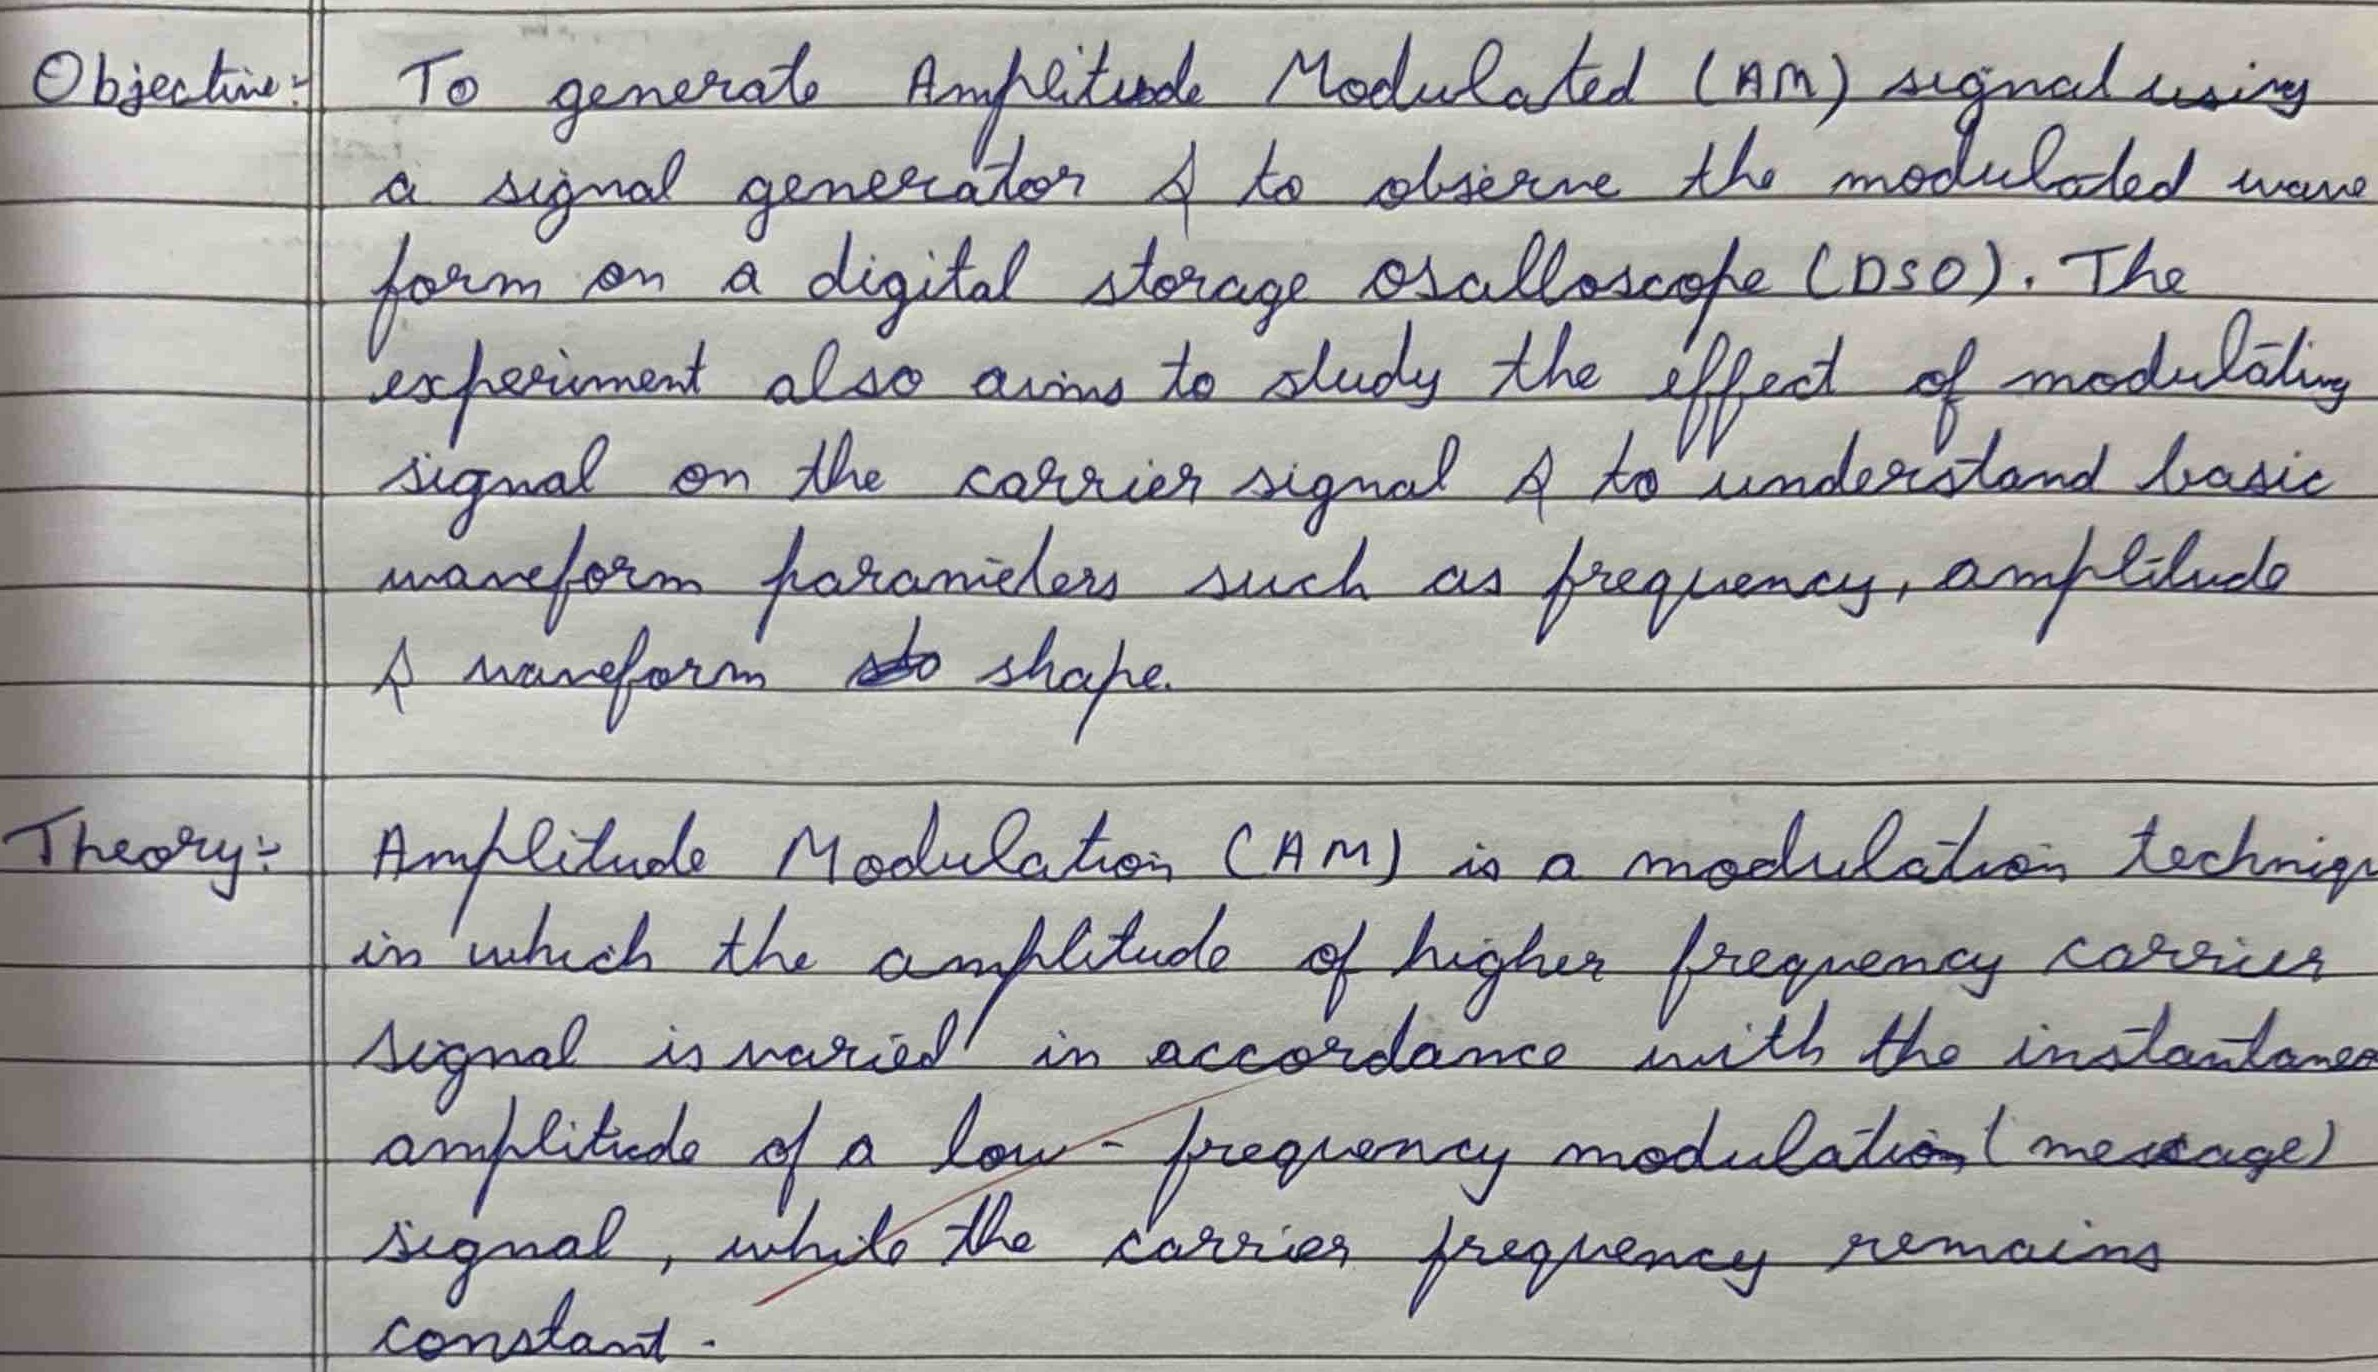 Objective:- To generate Amplitude Modulated (AM) signal using
a signal generator & to observe the modulated wave
form on a digital storage osalloscope (DSO). The
experiment also aims to study the effect of modulating
signal on the carrier signal & to understand basic
waveform parameters such as frequency, amplitude
& waveform shape.
Theory:- Amplitude Modulation (AM) is a modulation techniqu
in which the amplitude of higher frequency carrier
signal is varied in accordance with the instantaneo
amplitude of a low - frequency modulation (message)
signal, while the carrier frequency remains
constant.